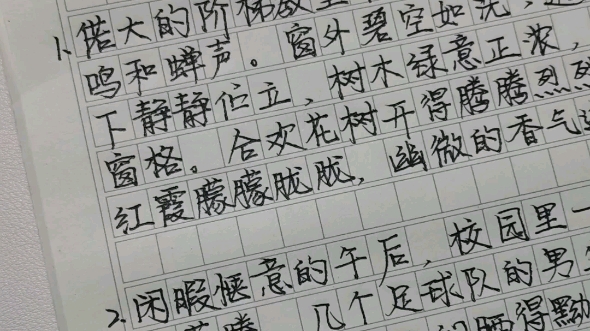 1.偌大的阶梯教室
鸣和蝉声。窗外碧空如洗,
下静静伫立,树木绿意正浓,
窗格。合欢花树开得腾腾烈烈
红霞朦朦胧胧,幽微的香气
2.闲暇惬意的午后,校园里一
几个足球队的男生
晒得黝